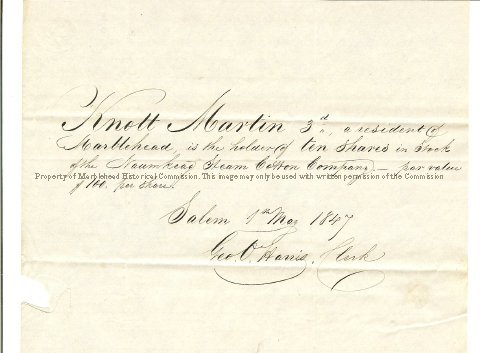 Knott Martin 3rd, a resident of
Marblehead, is the holder of ten shares in Stock
of the Naumkeag Steam Cotton Company — par value
Property of Marblehead Historical Commission. This image may only be used with written permission of the Commission
of 100. per share.
Salem 1st May 1847
Geo. O. Harris, Clerk